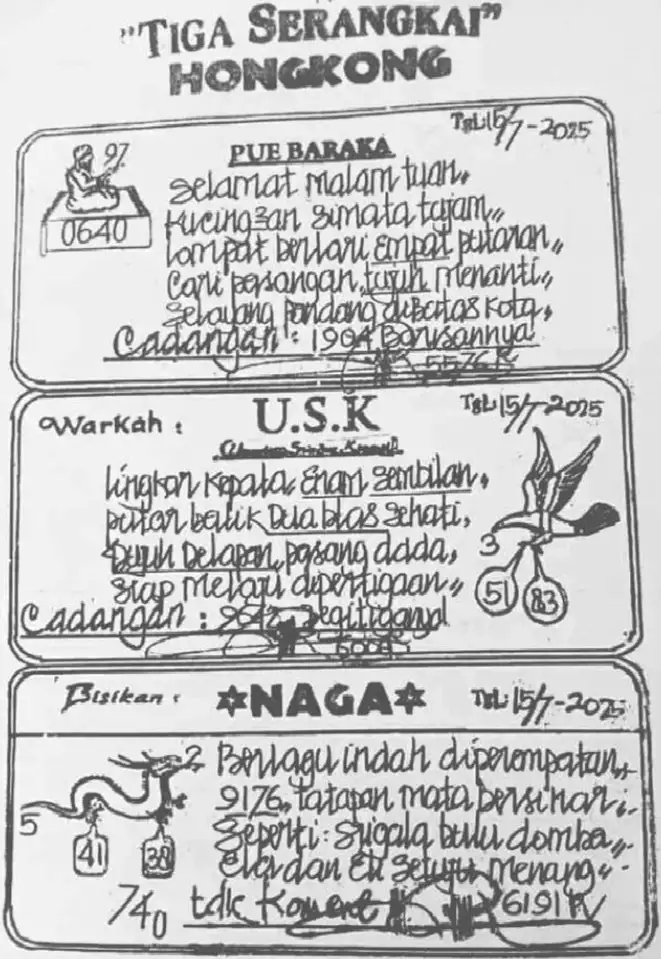 "TIGA SERANGKAI"
HONGKONG
Tgl 15/7-2025
97
PUE BARAKA
Selamat malam tuan,
kucing san simata tajam,,
lompat berlari empat putaran,,
Cari pasangan, tujuh menanti,,
Selayang pandang dibatas kota,
0640
Cadangan : 1904 Barusannya
5576
Warkah :
U.S.K
Tgl 15/7-2025
lingkar kepala, Enam sembilan,
putar balik Dua blas sehati,
Tujuh Delapan,, pasang dada,
siap melaju dipertigaan,,
3
51
83
Cadangan : 9642
Bisikan :
NAGA
Tgl: 15/7-2025
2
Berlagu indah diperempatan,,
9176, tatapan mata bersinar,,
Seperti: Srigala bulu domba,,
dan Eli setuju menang,,
5
41
38
740
tdk
6191